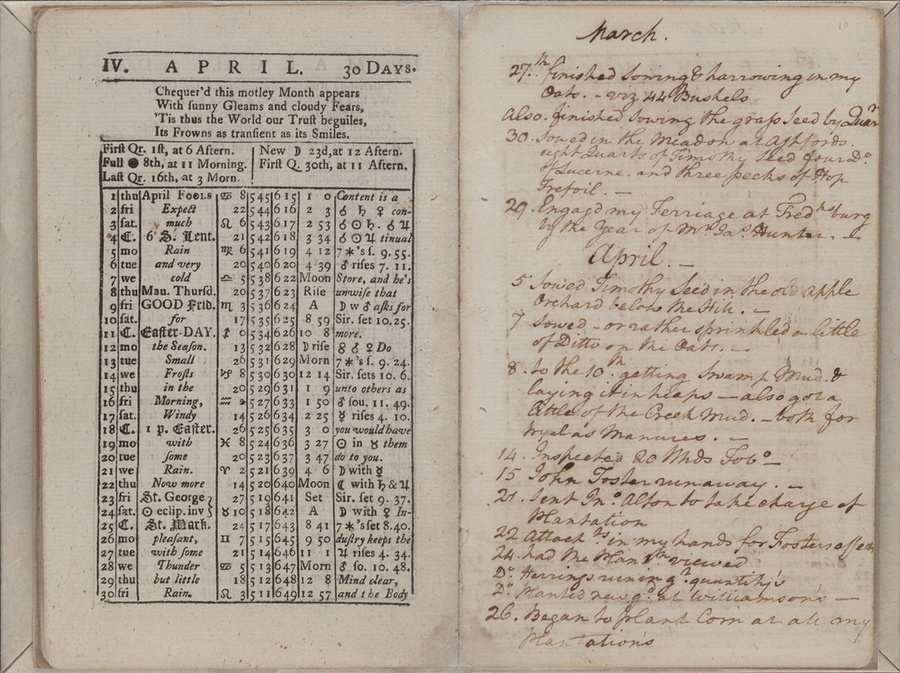 IV. APRIL. 30 DAYS.
Chequer'd this motley Month appears
With sunny Gleams and cloudy Fears,
'Tis thus the World our Trust beguiles,
Its Frowns as transient as its Smiles.
First Qr. 1st, at 6 Aftern. New ☽ 23d, at 12 Aftern.
Full ● 8th, at 11 Morning. First Q. 30th, at 11 Aftern.
Last Qr. 16th, at 3 Morn.
1 thu April FOOLS ♋ 8 5 45 6 15 1 0 Content is a
2 fri Expect 22 5 44 6 16 2 3 ♂ ♄ ♀ con-
3 sat. much ♌ 6 5 43 6 17 2 53 ♂ ☉ ♄. ♂ ♃
4 C. 6 S. Lent. 21 5 42 6 18 3 34 ♂ ☉ ♃ tinual
5 mo Rain ♍ 6 5 41 6 19 4 12 7 *'s s. 9. 55.
6 tue and very 20 5 40 6 20 4 39 ♂ rises 7. 11.
7 we cold ♎ 5 5 38 6 22 Moon Store, and he's
8 thu Mau. Thursd. 20 5 37 6 23 Rise unwise that
9 fri GOOD Frid. ♏ 3 5 36 6 24 A ☽ w ♂ asks for
10 sat. for 17 5 35 6 25 8 59 Sir. set 10.25.
11 C. Easter-DAY. ♐ 0 5 34 6 26 10 8 more.
12 mo the Season. 13 5 32 6 28 ☽ rise 8 ♂ ♀ Do
13 tue Small 26 5 31 6 29 Morn 7 *'s s. 9. 24.
14 we Frosts ♑ 8 5 30 6 30 12 14 Sir. sets 10. 6.
15 thu in the 20 5 29 6 31 1 9 unto others as
16 fri Morning, ♒ 2 5 27 6 33 1 50 ♂ sou. 11. 49.
17 sat. Windy 14 5 26 6 34 2 25 ☿ rises 4. 10.
18 C. 1 p. Easter. 26 5 25 6 35 3 0 you would have
19 mo with ♓ 8 5 24 6 36 3 27 ☉ in ♉ them
20 tue some 20 5 23 6 37 3 47 do to you.
21 we Rain. ♈ 2 5 21 6 39 4 6 ☽ with ☿
22 thu Now more 14 5 20 6 40 Moon ☾ with ♄ & ♃
23 fri St. George 27 5 19 6 41 Set Sir. set 9. 37.
24 sat. ☉ eclip. inv ♉ 10 5 18 6 42 A ☽ with ♀ In-
25 C. St. Mark. 24 5 17 6 43 8 41 7 *'s set 8.40.
26 mo pleasant, ♊ 7 5 15 6 45 9 50 dustry keeps the
27 tue with some 21 5 14 6 46 11 1 ♃ rises 4. 34.
28 we Thunder ♋ 5 5 13 6 47 Morn ♂ so. 10. 48.
29 thu but little 18 5 12 6 48 12 8 Mind clear,
30 fri Rain. ♌ 3 5 11 6 49 12 57 and the Body
10
March.
27.th finished Sowing & harrowing in my
Oats. - viz 44 Bushels
also finished sowing the grass seed by Quar
30. Sowed in the Meadow at Ashfords
eight Quarts of Timothy Seed four Do.
of Lucerne. and three pecks of Hop
Trefoil. -
29. Engagd my Ferriage at Fredksburg
by the Year of Mr. Jas. Hunter. -
April. -
5 Sowed Timothy Seed in the old apple
Orchard below the Hill. -
7 Sowed - or rather sprinkled a little
of Ditto on the Oats. -
8. to the 10th. getting Swamp Mud. &
laying it in heaps - also got a
little of the Creek Mud. - both for
tryal as Manures. -
14. Inspected 20 Hhds Tobo. -
15 John Foster runaway. -
21. Sent Jno. Alton to take charge of
Plantation
22 attachts. in my hands for Fosters effects
24. had the Plantn. viewed
Do. Herrings run in gt. quantity's
Do. Planted new gd. at Williamson's -
26. Began to plant Corn at all my
Plantation's